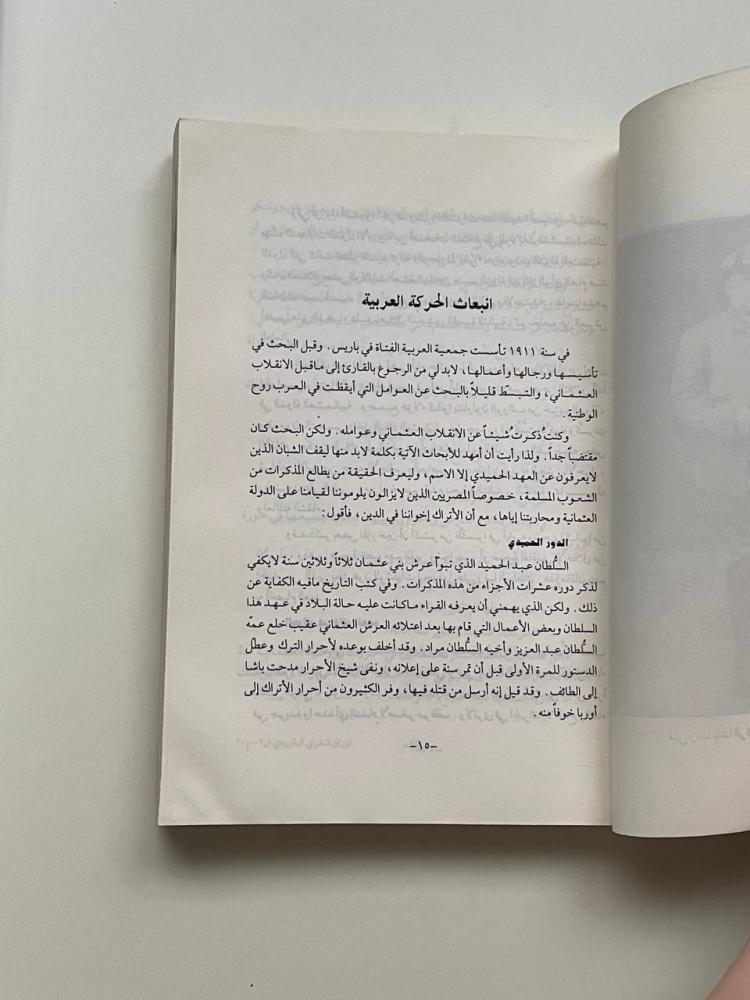 انبعاث الحركة العربية
في سنة ١٩١١ تأسست جمعية العربية الفتاة في باريس. وقبل البحث في
تأسيسها ورجالها وأعمالها، لابد لي من الرجوع بالقارئ إلى ماقبل الانقلاب
العثماني، والتبسّط قليلاً بالبحث عن العوامل التي أيقظت في العرب روح
الوطنية.
وكنت ذكرت شيئاً عن الانقلاب العثماني وعوامله. ولكن البحث كان
مقتضباً جداً. ولذا رأيت أن أمهد للأبحاث الآتية بكلمة لابد منها ليقف الشبان الذين
لايعرفون عن العهد الحميدي إلا الاسم، وليعرف الحقيقة من يطالع المذكرات من
الشعوب المسلمة، خصوصاً المصريين الذين لايزالون يلوموننا لقيامنا على الدولة
العثمانية ومحاربتنا إياها، مع أن الأتراك إخواننا في الدين، فأقول:
الدور الحميدي
السُّلطان عبد الحميد الذي تبوّأ عرش بني عثمان ثلاثاً وثلاثين سنة لايكفي
لذكر دوره عشرات الأجزاء من هذه المذكرات. وفي كتب التاريخ مافيه الكفاية عن
ذلك. ولكن الذي يهمني أن يعرفه القراء ماكانت عليه حالة البلاد في عهد هذا
السلطان وبعض الأعمال التي قام بها بعد اعتلائه العرش العثماني عقيب خلع عمّه
السُّلطان عبد العزيز وأخيه السُّلطان مراد. وقد أخلف بوعده لأحرار الترك وعطل
الدستور للمرة الأولى قبل أن تمر سنة على إعلانه، ونفى شيخ الأحرار مدحت باشا
إلى الطائف. وقد قيل إنه أرسل من قتله فيها، وفر الكثيرون من أحرار الأتراك إلى
أوربا خوفاً منه.
-١٥-